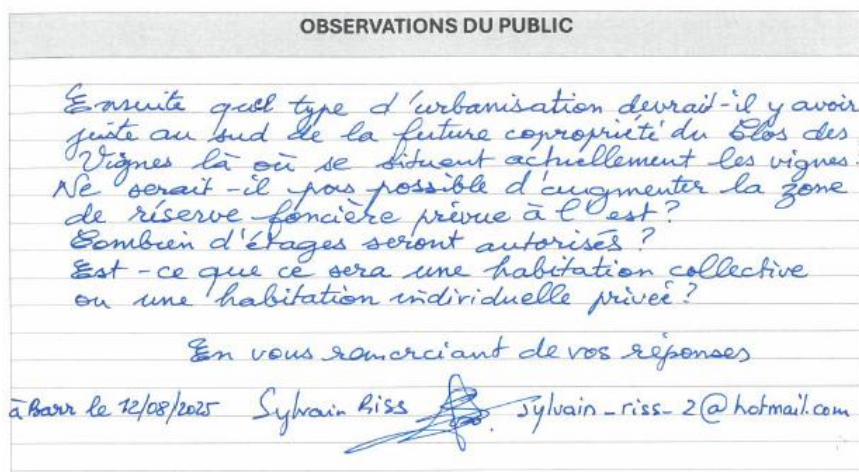 OBSERVATIONS DU PUBLIC
Ensuite quel type d'urbanisation devrait-il y avoir
juste au sud de la future copropriété du Clos des
Vignes là où se situent actuellement les vignes?
Ne serait-il pas possible d'augmenter la zone
de réserve foncière prévue à l'est?
Combien d'étages seront autorisés?
Est-ce que ce sera une habitation collective
ou une habitation individuelle privée?
En vous remerciant de vos réponses
à Barr le 12/08/2025 Sylvain Riss sylvain_riss_2@hotmail.com